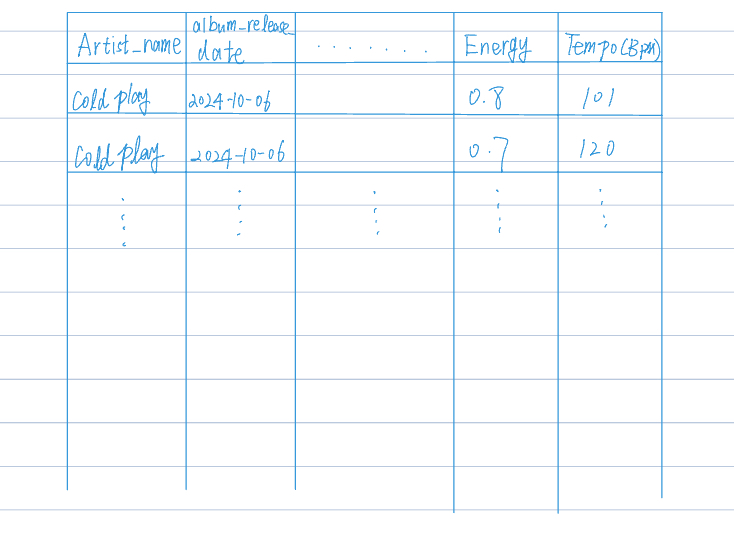 Artist_name album_release_date ....... Energy Tempo(Bpm)
Cold play 2024-10-06 0.8 101
Cold play 2024-10-06 0.7 120